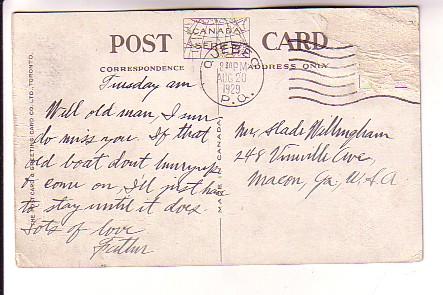 CANADA
POST CARD
CORRESPONDENCE
ADDRESS ONLY
QUEBEC
PM
AUG 20
1929
P.Q.
Tuesday am
Well old man, I sure
do miss you. If that
old boat dont hurry up
& come on, I'll just have
to stay until it does.
Lots of love
Father
Slade Willingham
248 Vineville Ave,
Macon, Ga, U.S.A
MADE IN CANADA
THE POSTCARD & GREETING CARD CO. LTD., TORONTO.